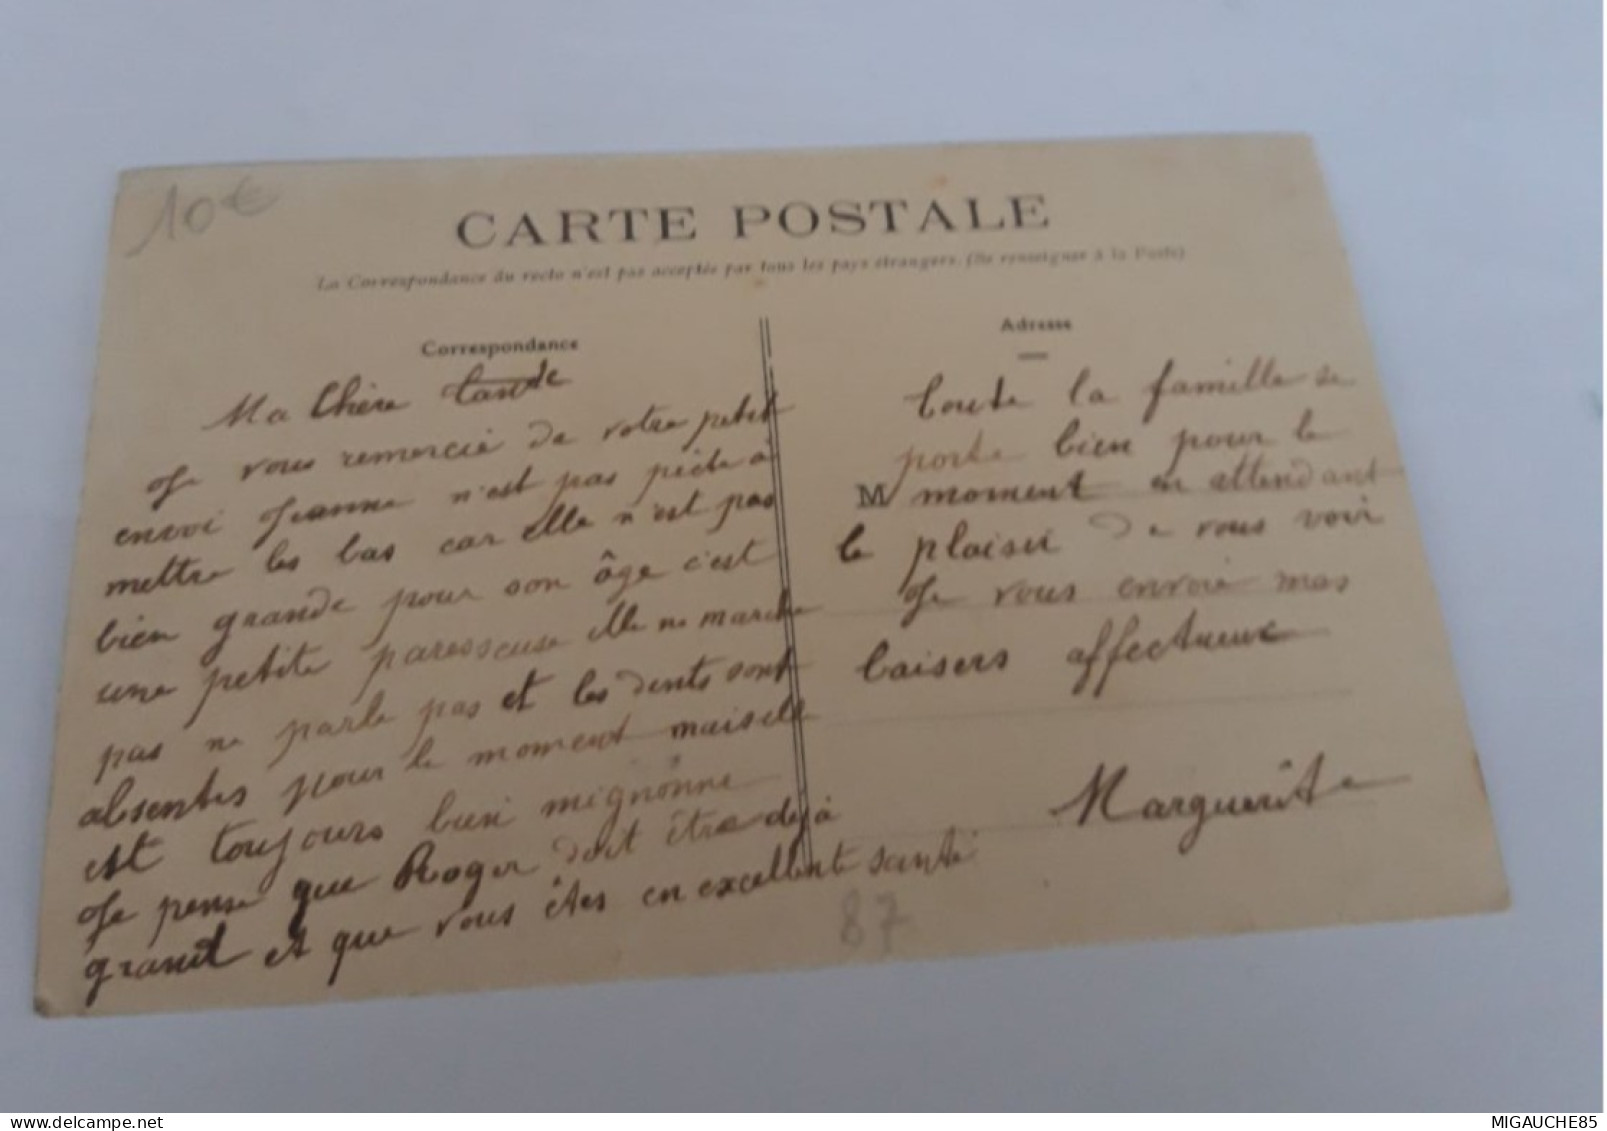 10€
CARTE POSTALE
La Correspondance du recto n'est pas acceptée par tous les pays étrangers. (Se renseigner à la Poste)
Correspondance
Ma Chère tante
Je vous remercie de votre petit
envoi Jeanne n'est pas prète à
mettre les bas car elle n'est pas
bien grande pour son âge c'est
une petite paresseuse elle ne marche
pas ne parle pas et les dents sont
absentes pour le moment mais elle
est toujours bien mignonne
Je pense que Roger doit être déjà
grand et que vous êtes en excellente santé
Adresse
toute la famille se
porte bien pour le
M moment en attendant
le plaisir de vous voir
Je vous envoie mes
baisers affectueux
Marguerite
87
MIGAUCHE85